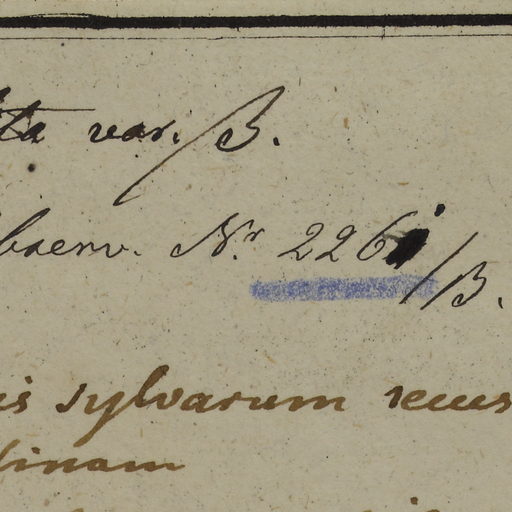 ta var. β.
bserv. Nr. 226 /β.
is sylvarum secus
linam